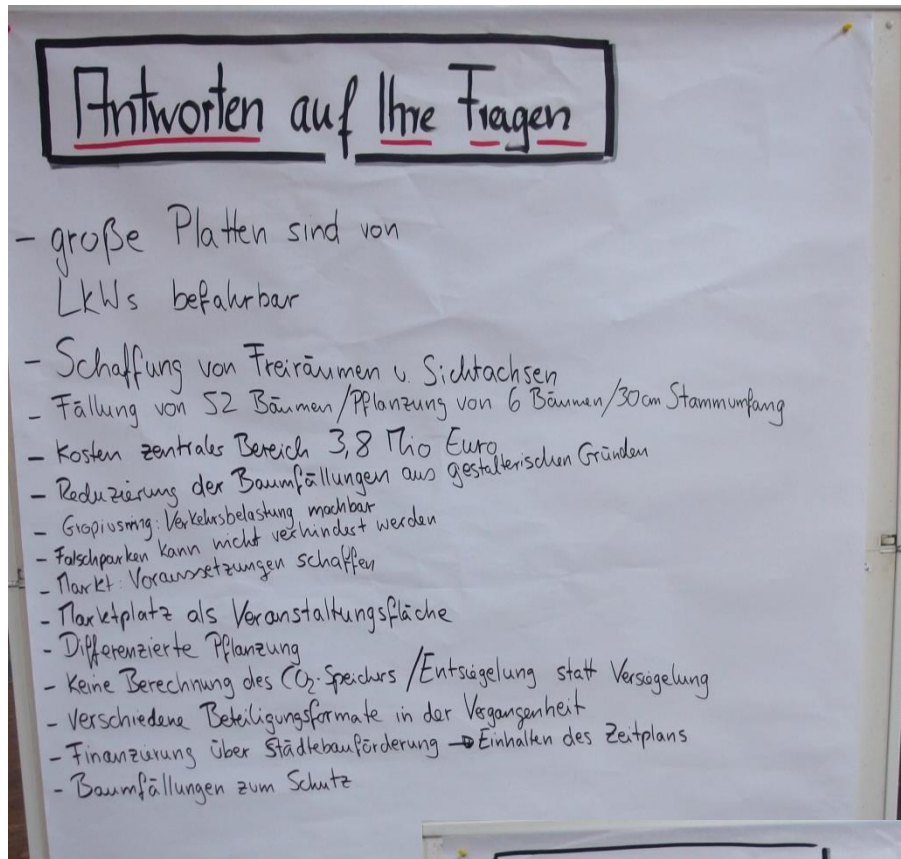 Antworten auf Ihre Fragen
- große Platten sind von
LKWs befahrbar
- Schaffung von Freiräumen u. Sichtachsen
- Fällung von 52 Bäumen/Pflanzung von 6 Bäumen/30cm Stammumfang
- Kosten zentrales Bereich 3,8 Mio Euro
- Reduzierung der Baumfällungen aus gestalterischen Gründen
- Gropiusring: Verkehrsbelastung machbar
- Falschparken kann nicht verhindert werden
- Markt: Voraussetzungen schaffen
- Marktplatz als Veranstaltungsfläche
- Differenzierte Pflanzung
- Keine Berechnung des CO₂-Speichers /Entsiegelung statt Versiegelung
- Verschiedene Beteiligungsformate in der Vergangenheit
- Finanzierung über Städtebauförderung → Einhalten des Zeitplans
- Baumfällungen zum Schutz